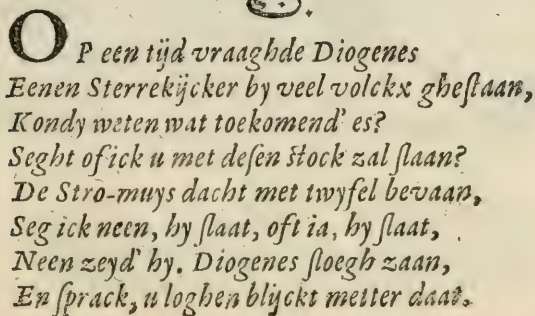 OP een tijd vraaghde Diogenes
Eenen Sterrekijcker by veel volckx gheſtaan,
Kondy weten wat toekomend' es?
Seght of ick u met deſen ſtock zal ſlaan?
De Stro-muys dacht met twyfel bevaan,
Seg ick neen, hy ſlaat, oft ia, hy ſlaat,
Neen zeyd' hy. Diogenes ſloegh zaan,
En ſprack, u loghen blijckt metter daat.